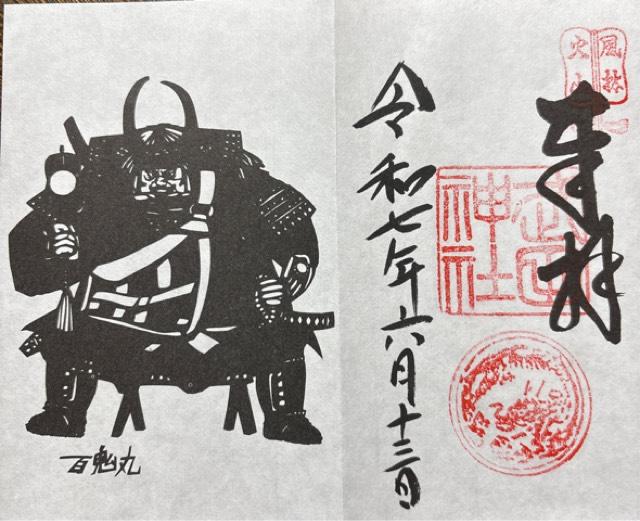 風林
火山
奉拝
武田
神社
令和七年六月十三日
百鬼丸